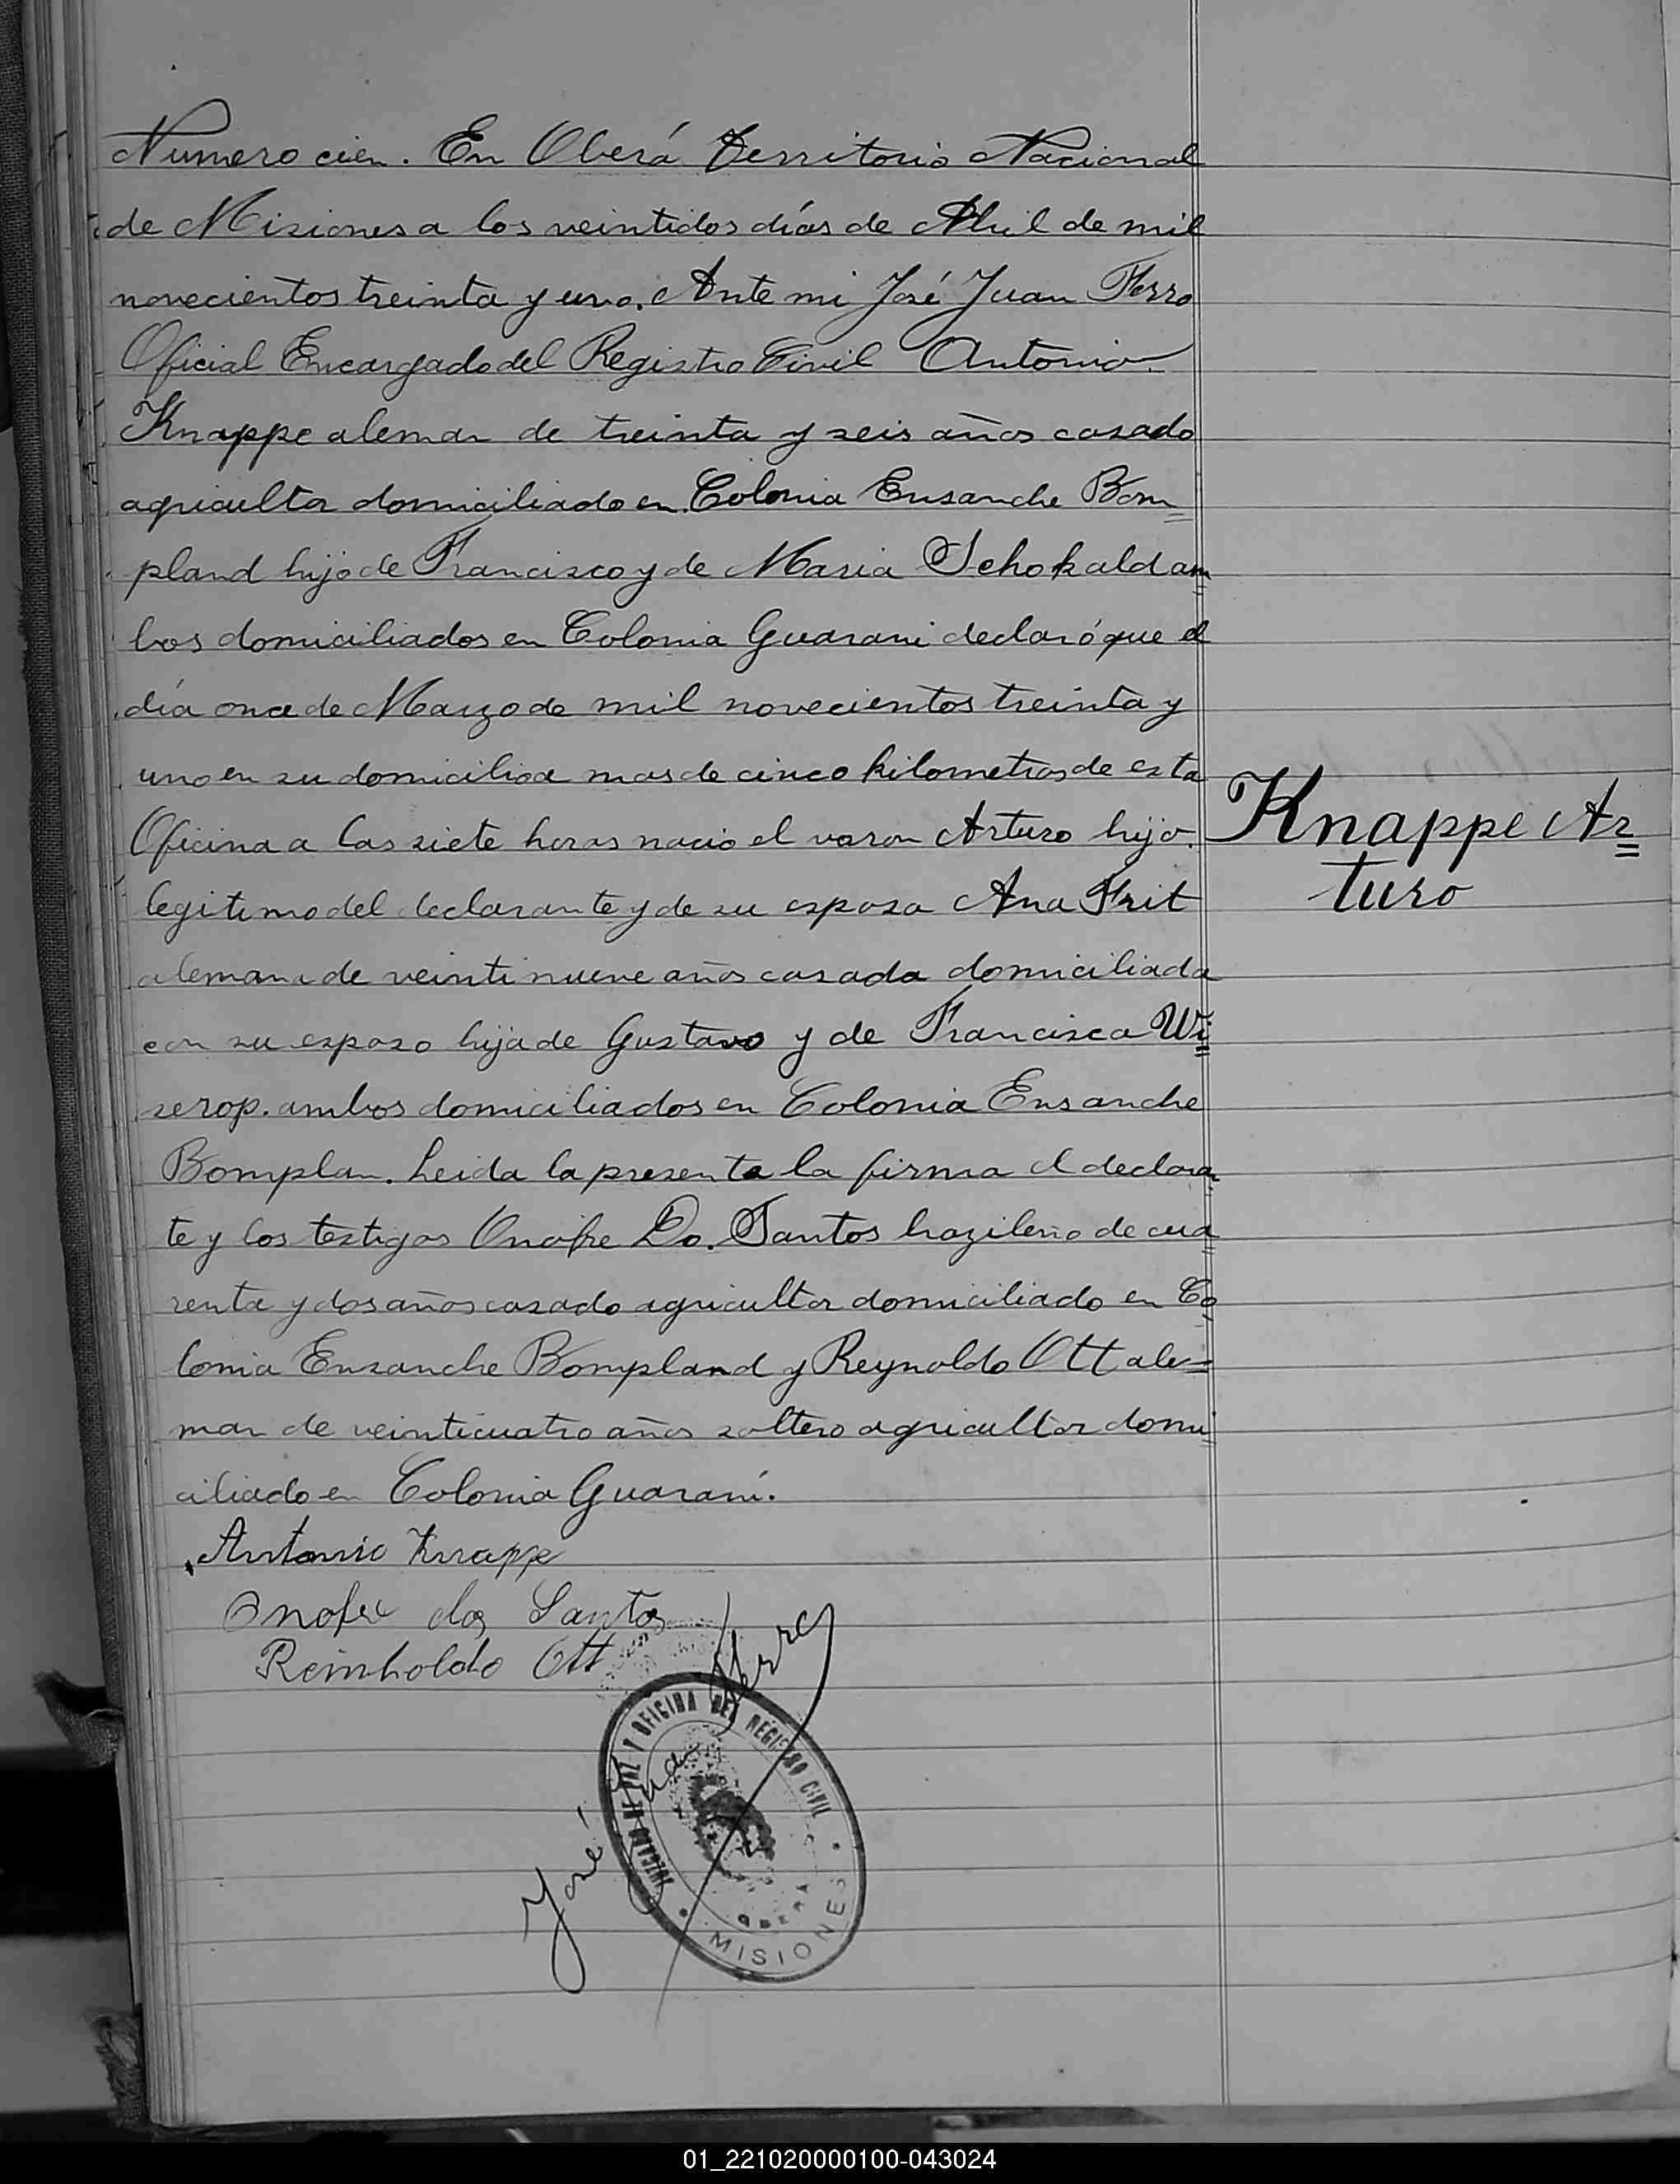 Numero cien. En Oberá Territorio Nacional
de Misiones a los veintidos días de Abril de mil
novecientos treinta y uno. Ante mi José Juan Ferro
Oficial Encargado del Registro Civil Antonio
Knappe aleman de treinta y seis años casado
agricultor domiciliado en Colonia Ensanche Bom=
pland hijo de Francisco y de Maria Schokald am=
bos domiciliados en Colonia Guarani declaró que el
día once de Marzo de mil novecientos treinta y
uno en su domicilio a mas de cinco kilometros de esta
Oficina a las siete horas nacio el varon Arturo hijo
Knappe Ar=
turo
legitimo del declarante y de su esposa Ana Frit
alemana de veintinueve años casada domiciliada
con su esposo hija de Gustavo y de Francisca Wi=
serop. ambos domiciliados en Colonia Ensanche
Bomplan. Leida la presente la firma el declaran
te y los testigos Onofre Do. Santos brazileño de cua=
renta y dos años casado agricultor domiciliado en Co
lonia Ensanche Bompland y Reynoldo Ott ale=
man de veinticuatro años soltero agricultor domi
ciliado en Colonia Guaraní.
Antonio Knappe
Onofre dos Santos
Reinholdo Ott
José Juan Ferro
JUZGADO DE PAZ Y OFICINA DEL REGISTRO CIVIL
OBERA
MISIONES
01_221020000100-043024